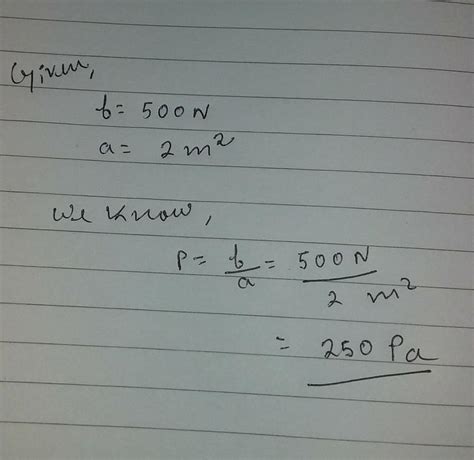 Given,
f = 500 N
a = 2 m²
We know,
P = f/a = 500 N / 2 m²
= 250 Pa